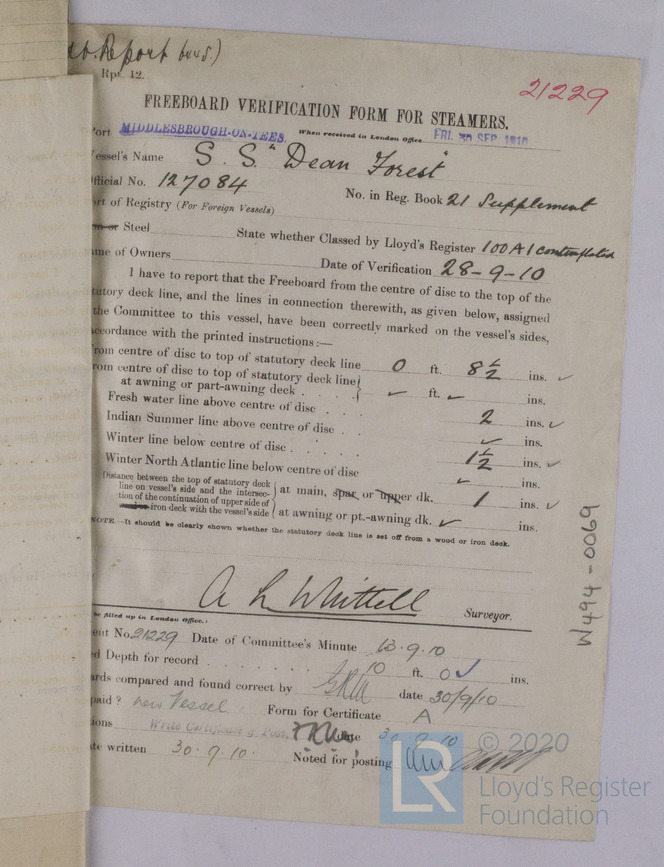 Report 6445.)
Rpt. 12.
21229
FREEBOARD VERIFICATION FORM FOR STEAMERS.
ort MIDDLESBROUGH-ON-TEES. When received in London Office FRI. 30 SEP. 1910
essel's Name S. S. "Dean Forest"
fficial No. 127084 No. in Reg. Book 21 Supplement
rt of Registry (For Foreign Vessels)
Steel State whether Classed by Lloyd's Register 100A1 contemplated
me of Owners Date of Verification 28-9-10
I have to report that the Freeboard from the centre of disc to the top of the
tutory deck line, and the lines in connection therewith, as given below, assigned
the Committee to this vessel, have been correctly marked on the vessel's sides,
ccordance with the printed instructions:—
rom centre of disc to top of statutory deck line 0 ft. 8½ ins. ✓
rom centre of disc to top of statutory deck line
at awning or part-awning deck . ✓ ft. ✓ ins.
Fresh water line above centre of disc . . . . 2 ins. ✓
Indian Summer line above centre of disc . . ✓ ins.
Winter line below centre of disc . . . . . 1½ ins. ✓
Winter North Atlantic line below centre of disc ✓ ins.
Distance between the top of statutory deck
line on vessel's side and the intersec-
tion of the continuation of upper side of
iron deck with the vessel's side
at main, spar, or upper dk. 1 ins. ✓
at awning or pt.-awning dk. ✓ ins.
NOTE.—It should be clearly shown whether the statutory deck line is set off from a wood or iron deck.
A L Whittell Surveyor.
be filled up in London Office.)
ent No. 21229 Date of Committee's Minute 13.9.10
d Depth for record . . . . . . . 10 ft. 0 ✓ ins.
rds compared and found correct by date 30/9/10
paid? New Vessel Form for Certificate A
ions Write Certificate & Post, date 30.9.10
te written 30.9.10. Noted for posting
W494-0069
LR
© 2020
Lloyd's Register
Foundation